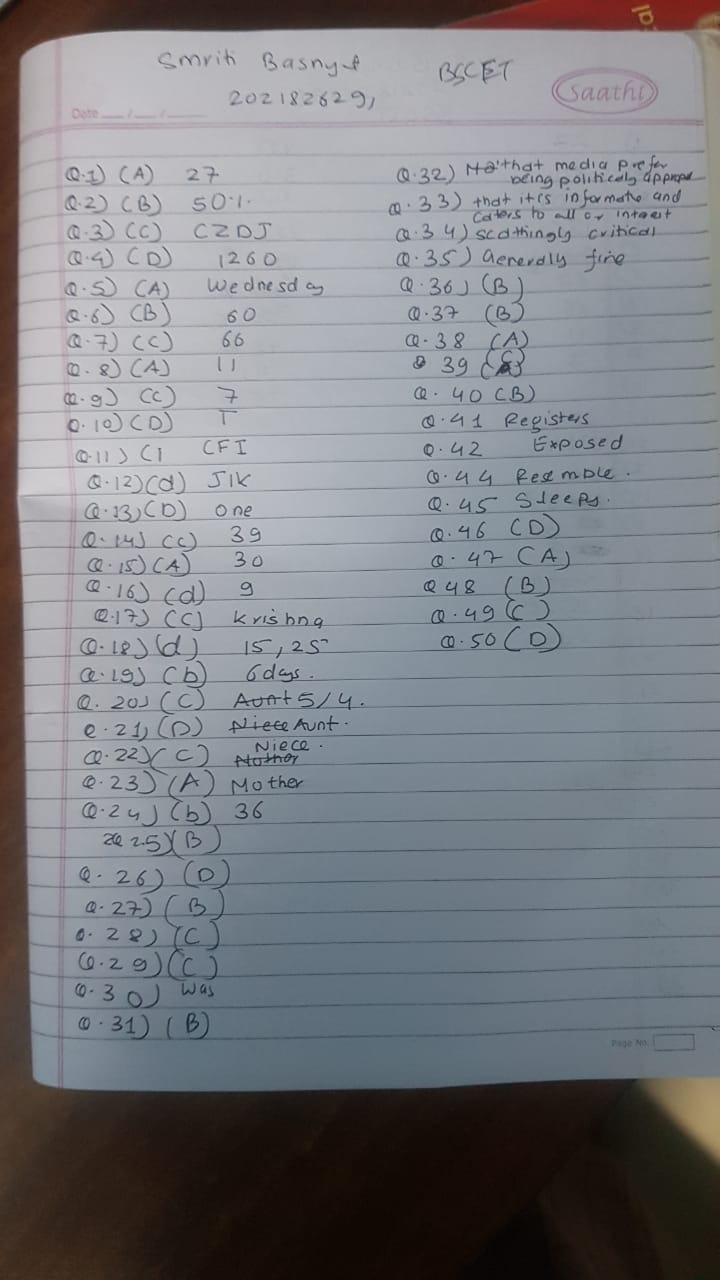 Smriti Basnyt
BSCET
202182629,
Saathi
Date
Q.1) (A) 27
Q.2) (B) 50%
Q.3) (C) CZDJ
Q.4) (D) 1260
Q.5) (A) Wednesday
Q.6) (B) 60
Q.7) (C) 66
Q.8) (A) 11
Q.9) (C) 7
Q.10) (D) T
Q.11) C) CFI
Q.12) (d) JIK
Q.13) (D) One
Q.14) (C) 39
Q.15) (A) 30
Q.16) (d) 9
Q.17) (C) Krishna
Q.18) (d) 15, 25
Q.19) (b) 6days.
Q.20) (C) Aunt 5/4.
Q.21) (D) Niece Aunt.
Q.22) (C) Niece.
Q.23) (A) Mother
Q.24) (b) 36
Q 25) (B)
Q.26) (D)
Q.27) (B)
Q.28) (C)
Q.29) (C)
Q.30) Was
Q.31) (B)
Q.32) that media prefer
being politically
Q.33) that it is informative and
Caters to all
Q.34) scathingly critical
Q.35) Generally fine
Q.36) (B)
Q.37 (B)
Q.38 (A)
39
Q.40 (B)
Q.41 Registers
Q.42 Exposed
Q.44 Resemble.
Q.45 Sleepy.
Q.46 (D)
Q.47 (A)
Q 48 (B)
Q.49 (C)
Q.50 (D)
Page No.